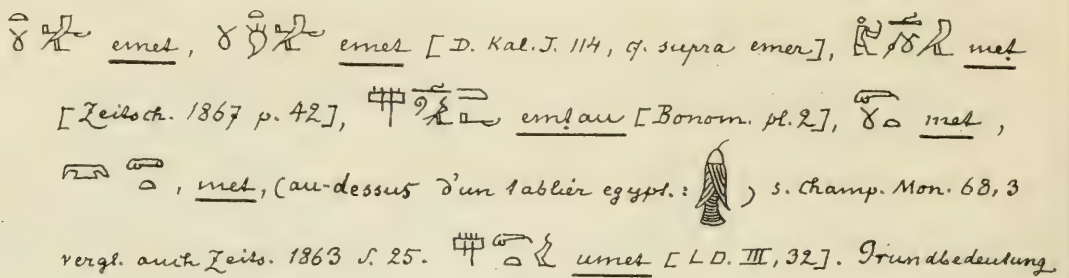 emet, emet [D. Kal. J. 114, cf. supra emer], met
[Zeitsch. 1867 p. 42], emṭau [Bonom. pl. 2], met,
, met, (au-dessus d'un tablier egypt.: ) s. Champ. Mon. 68, 3
vergl. auch Zeits. 1863 S. 25. umet [LD. III, 32]. Grundbedeutung